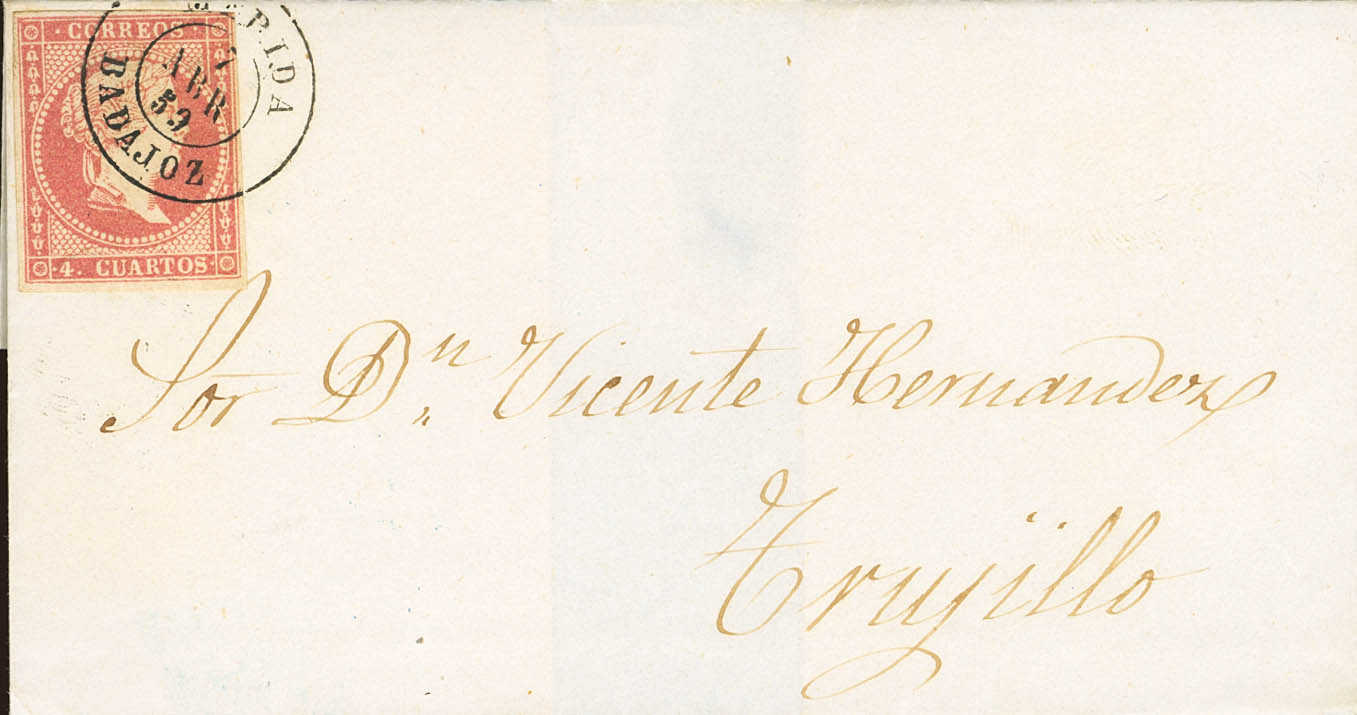 CORREOS
MERIDA
7
ABR
59
BADAJOZ
4. CUARTOS
Sor Dn. Vicente Hernandez
Trujillo